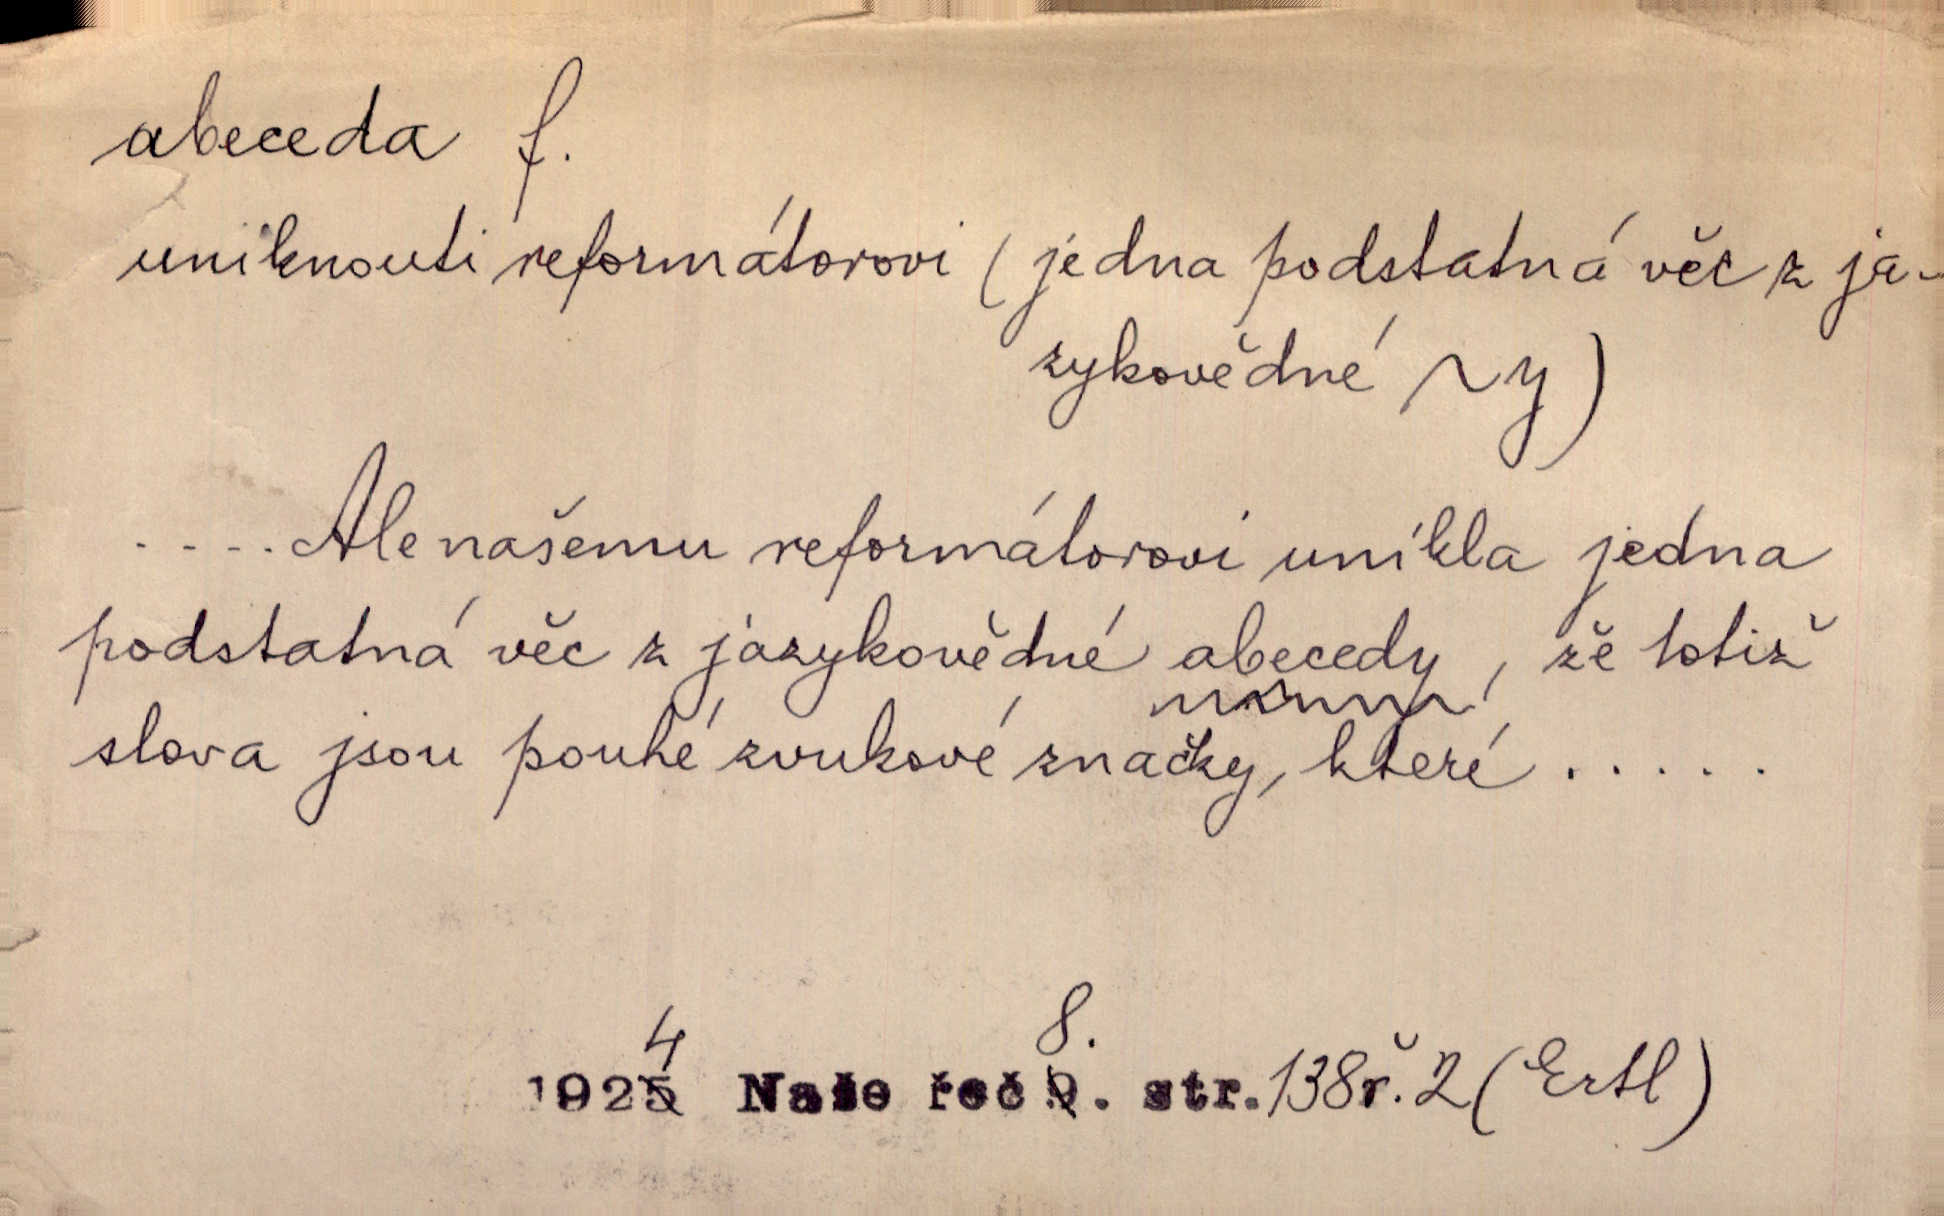 abeceda f.
uniknouti reformátorovi (jedna podstatná věc z ja-
zykovědné ~y)
....Ale našemu reformátorovi unikla jedna
podstatná věc z jazykovědné abecedy, že totiž
slova jsou pouhé zvukové značky, které .....
1924 Naše řeč 8. str. 138 ř. 2 (Ertl)